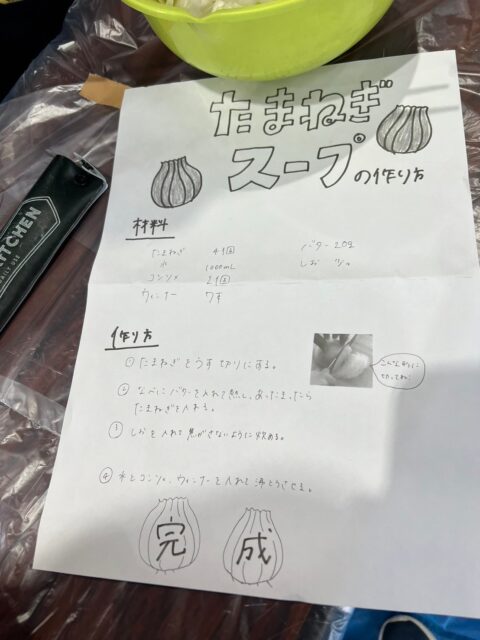 たまねぎ
スープの作り方
KITCHEN
DAILY USE
材料
たまねぎ 4個 バター 20g
水 1000mL しお
コンソメ 2個
ウィンナー 7本
作り方
① たまねぎをうす切りにする。
こんな形に
切ってね!
② なべにバターを入れて熱し、あったまったら
たまねぎを入れる。
③ しおを入れて焦がさないように炒める。
④ 水とコンソメ、ウィンナーを入れて沸とうさせる。
完成